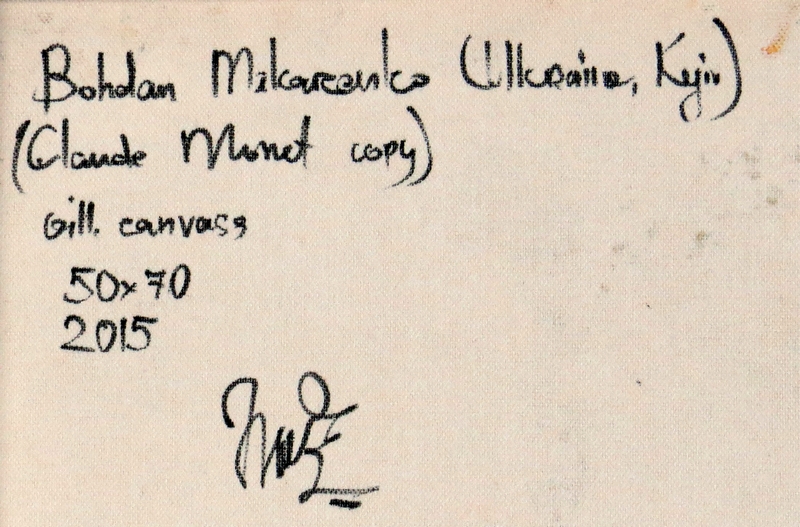 Bohdan Makarenko (Ukraine, Kyiv)
(Claude Monet copy)
oill. canvass
50x70
2015